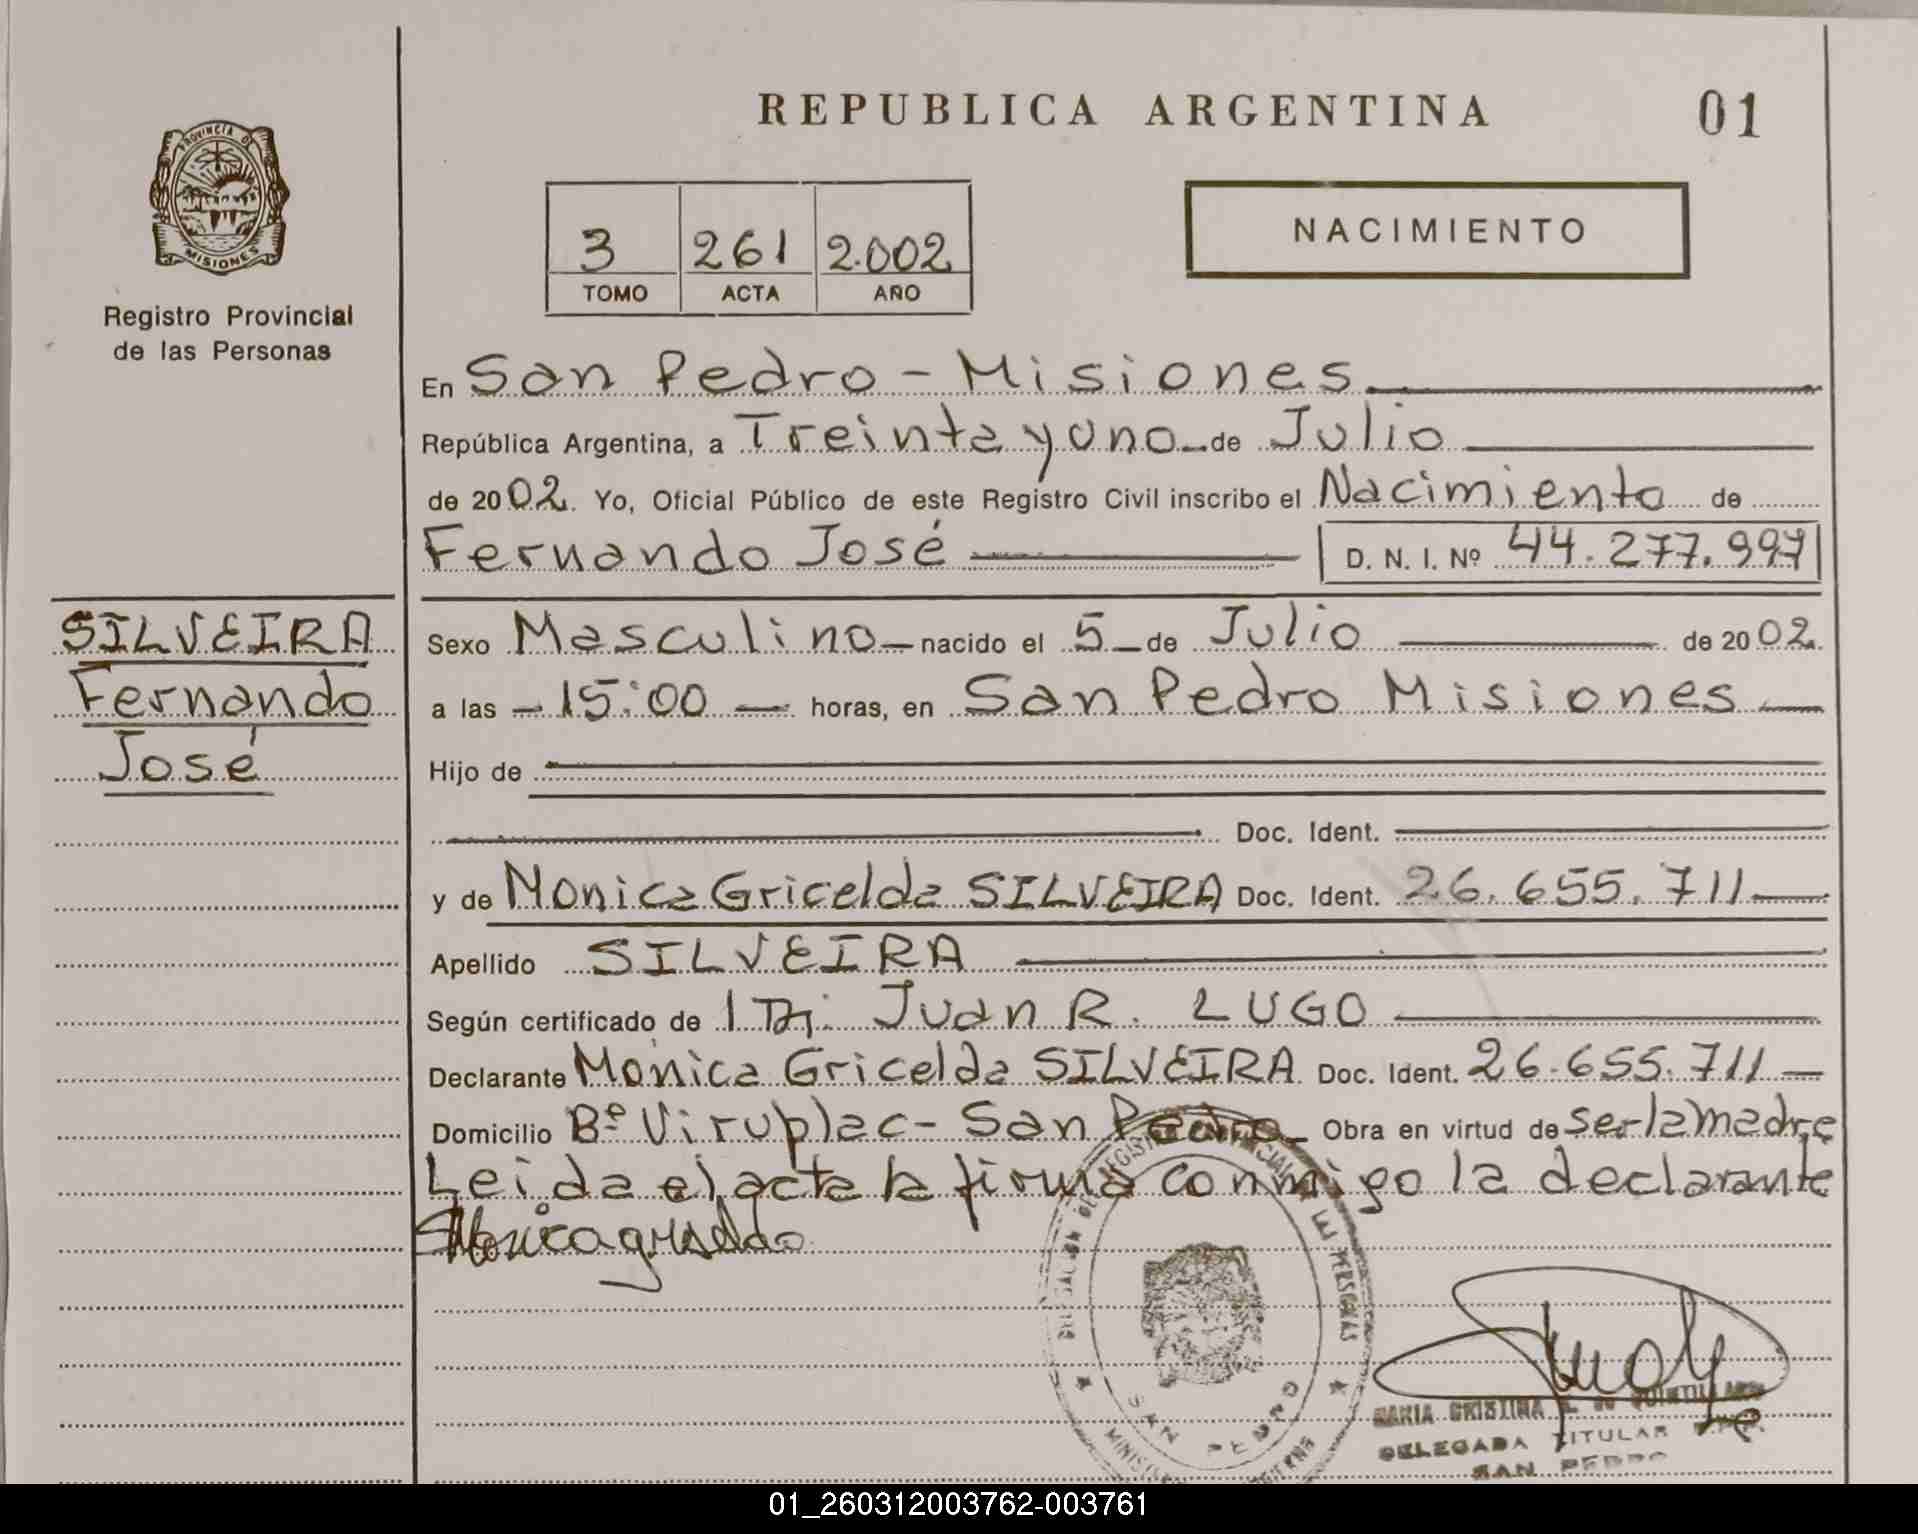 REPUBLICA ARGENTINA
01
PROVINCIA DE
MISIONES
Registro Provincial
de las Personas
NACIMIENTO
3 261 2.002
TOMO ACTA AÑO
En San Pedro - Misiones
República Argentina, a Treinta y uno de Julio
de 2002. Yo, Oficial Público de este Registro Civil inscribo el Nacimiento de
Fernando José D. N. I. Nº 44.277.997
SILVEIRA
Fernando
José
Sexo Masculino nacido el 5 de Julio de 2002.
a las - 15:00 - horas, en San Pedro Misiones
Hijo de
Doc. Ident.
y de Monica Gricelda SILVEIRA Doc. Ident. 26.655.711
Apellido SILVEIRA
Según certificado de Juan R. LUGO
Declarante Monica Gricelda SILVEIRA Doc. Ident. 26.655.711
Domicilio Bº Viruplac - San Pedro Obra en virtud de ser la madre
Leida el acta la firma conmigo la declarante
SAN PEDRO
MARIA CRISTINA
DELEGADA TITULAR
SAN PEDRO
01_260312003762-003761